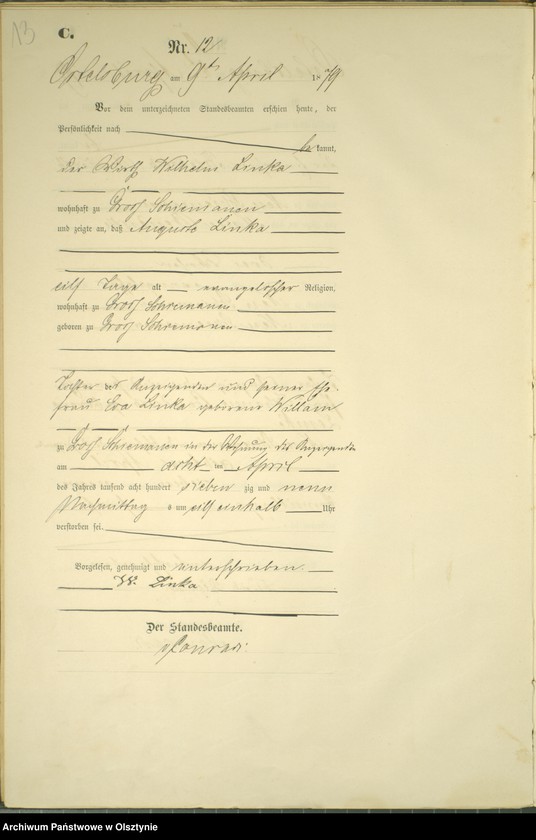 13
C.
Nr. 12
Ortelsburg am 9ten April 1879
Vor dem unterzeichneten Standesbeamten erschien heute, der
Persönlichkeit nach
be kannt,
der Wirth Wilhelm Linka
wohnhaft zu Groß Schiemanen
und zeigte an, daß Auguste Linka
eilf Tage alt evangelischer Religion,
wohnhaft zu Groß Schiemanen
geboren zu Groß Schiemanen
Tochter des Anzeigenden und seiner Ehe-
frau Eva Linka geborene Willam
zu Groß Schiemanen in der Wohnung des Anzeigenden
am acht ten April
des Jahres tausend acht hundert sieben zig und neun
Nachmittag s um eilf einhalb Uhr
verstorben sei.
Vorgelesen, genehmigt und unterschrieben
W. Linka
Der Standesbeamte.
Archiwum Państwowe w Olsztynie